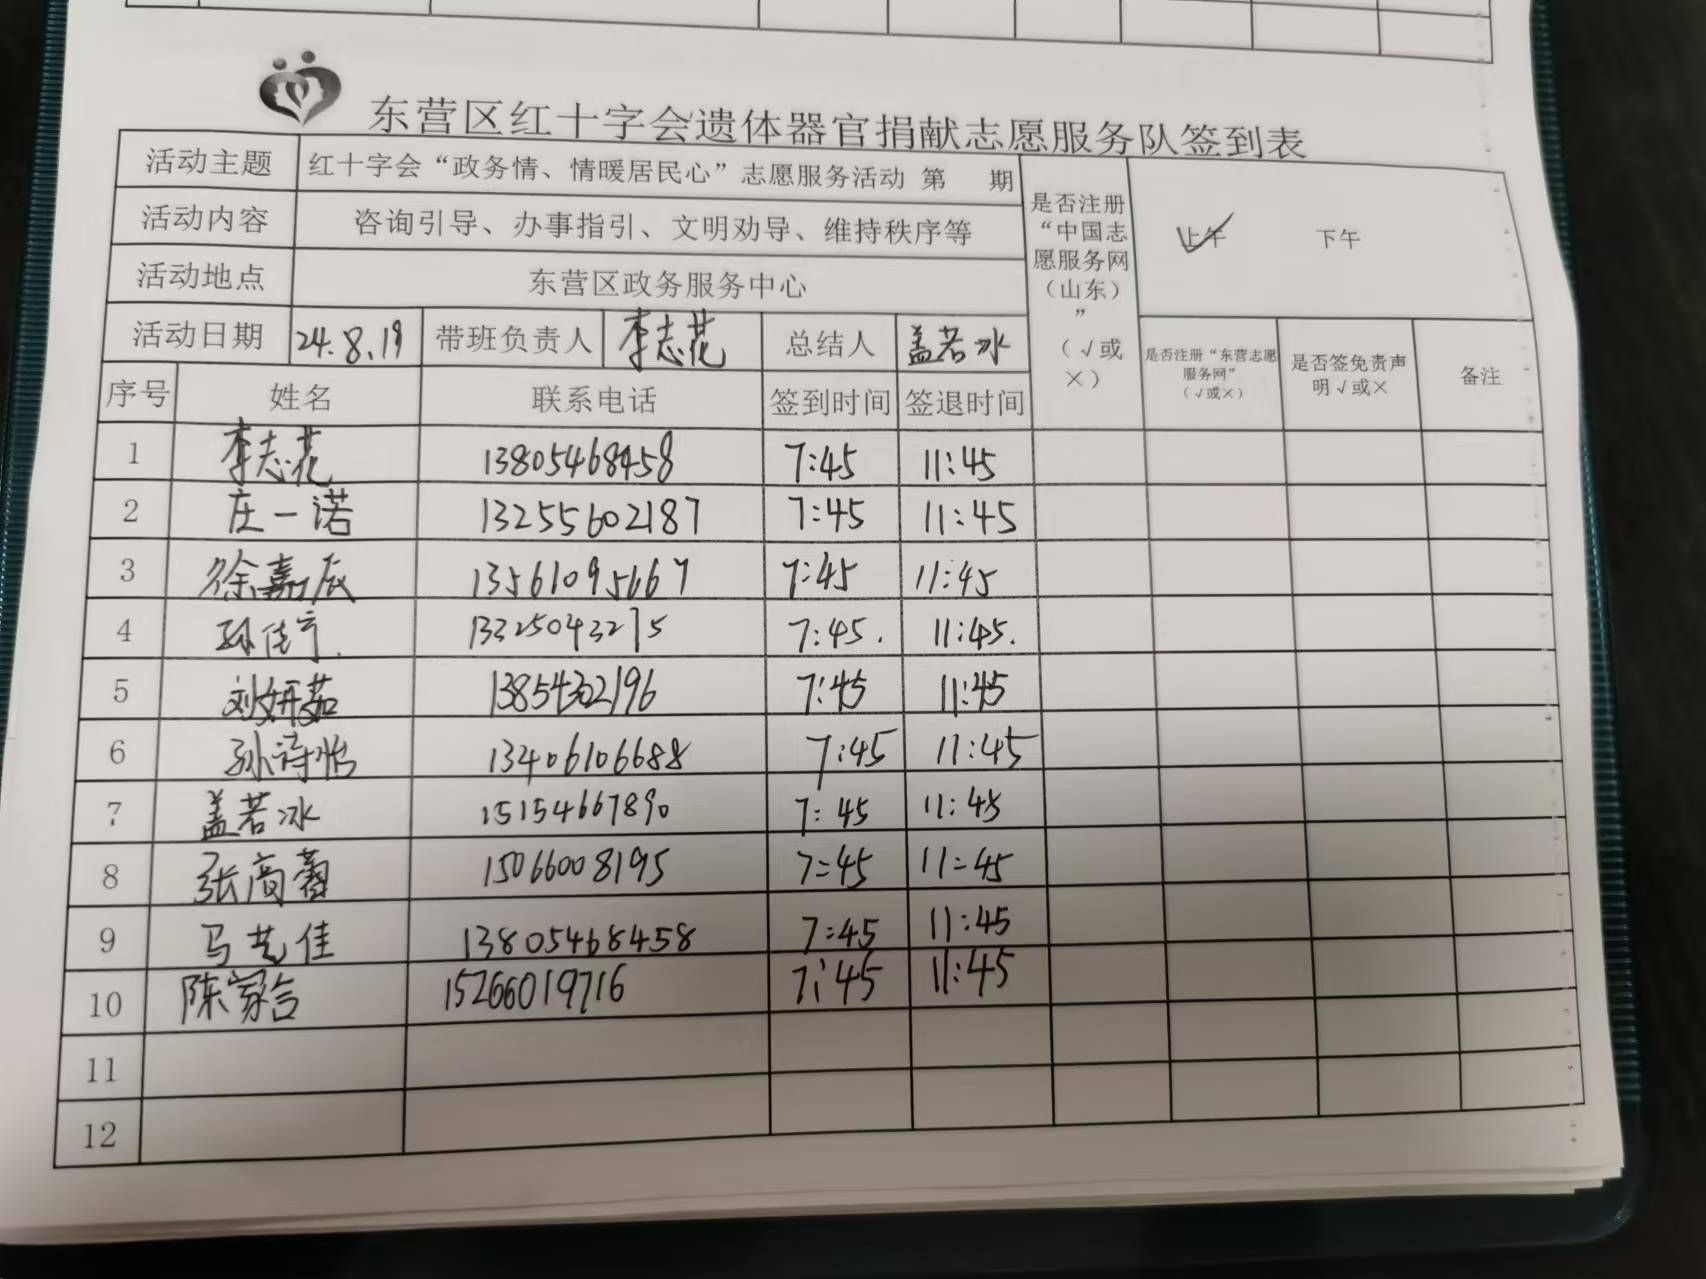 东营区红十字会遗体器官捐献志愿服务队签到表
活动主题 红十字会“政务情、情暖居民心”志愿服务活动 第 期 是否注册“中国志愿服务网（山东）”（√或×） 上午 下午
活动内容 咨询引导、办事指引、文明劝导、维持秩序等
活动地点 东营区政务服务中心
活动日期 24.8.19 带班负责人 李志花 总结人 盖若冰 是否注册“东营志愿服务网”（√或×） 是否签免责声明√或× 备注
序号 姓名 联系电话 签到时间 签退时间
1 李志花 13805468458 7:45 11:45
2 庄一诺 13255602187 7:45 11:45
3 徐嘉辰 13561095667 7:45 11:45
4 孙佳 13325043275 7:45. 11:45.
5 刘妍茹 13854302196 7:45 11:45
6 孙诗怡 13406106688 7:45 11:45
7 盖若冰 15154667890 7:45 11:45
8 张高 15066008195 7:45 11:45
9 马艺佳 13805468458 7:45 11:45
10 陈家合 15266019716 7:45 11:45
11
12